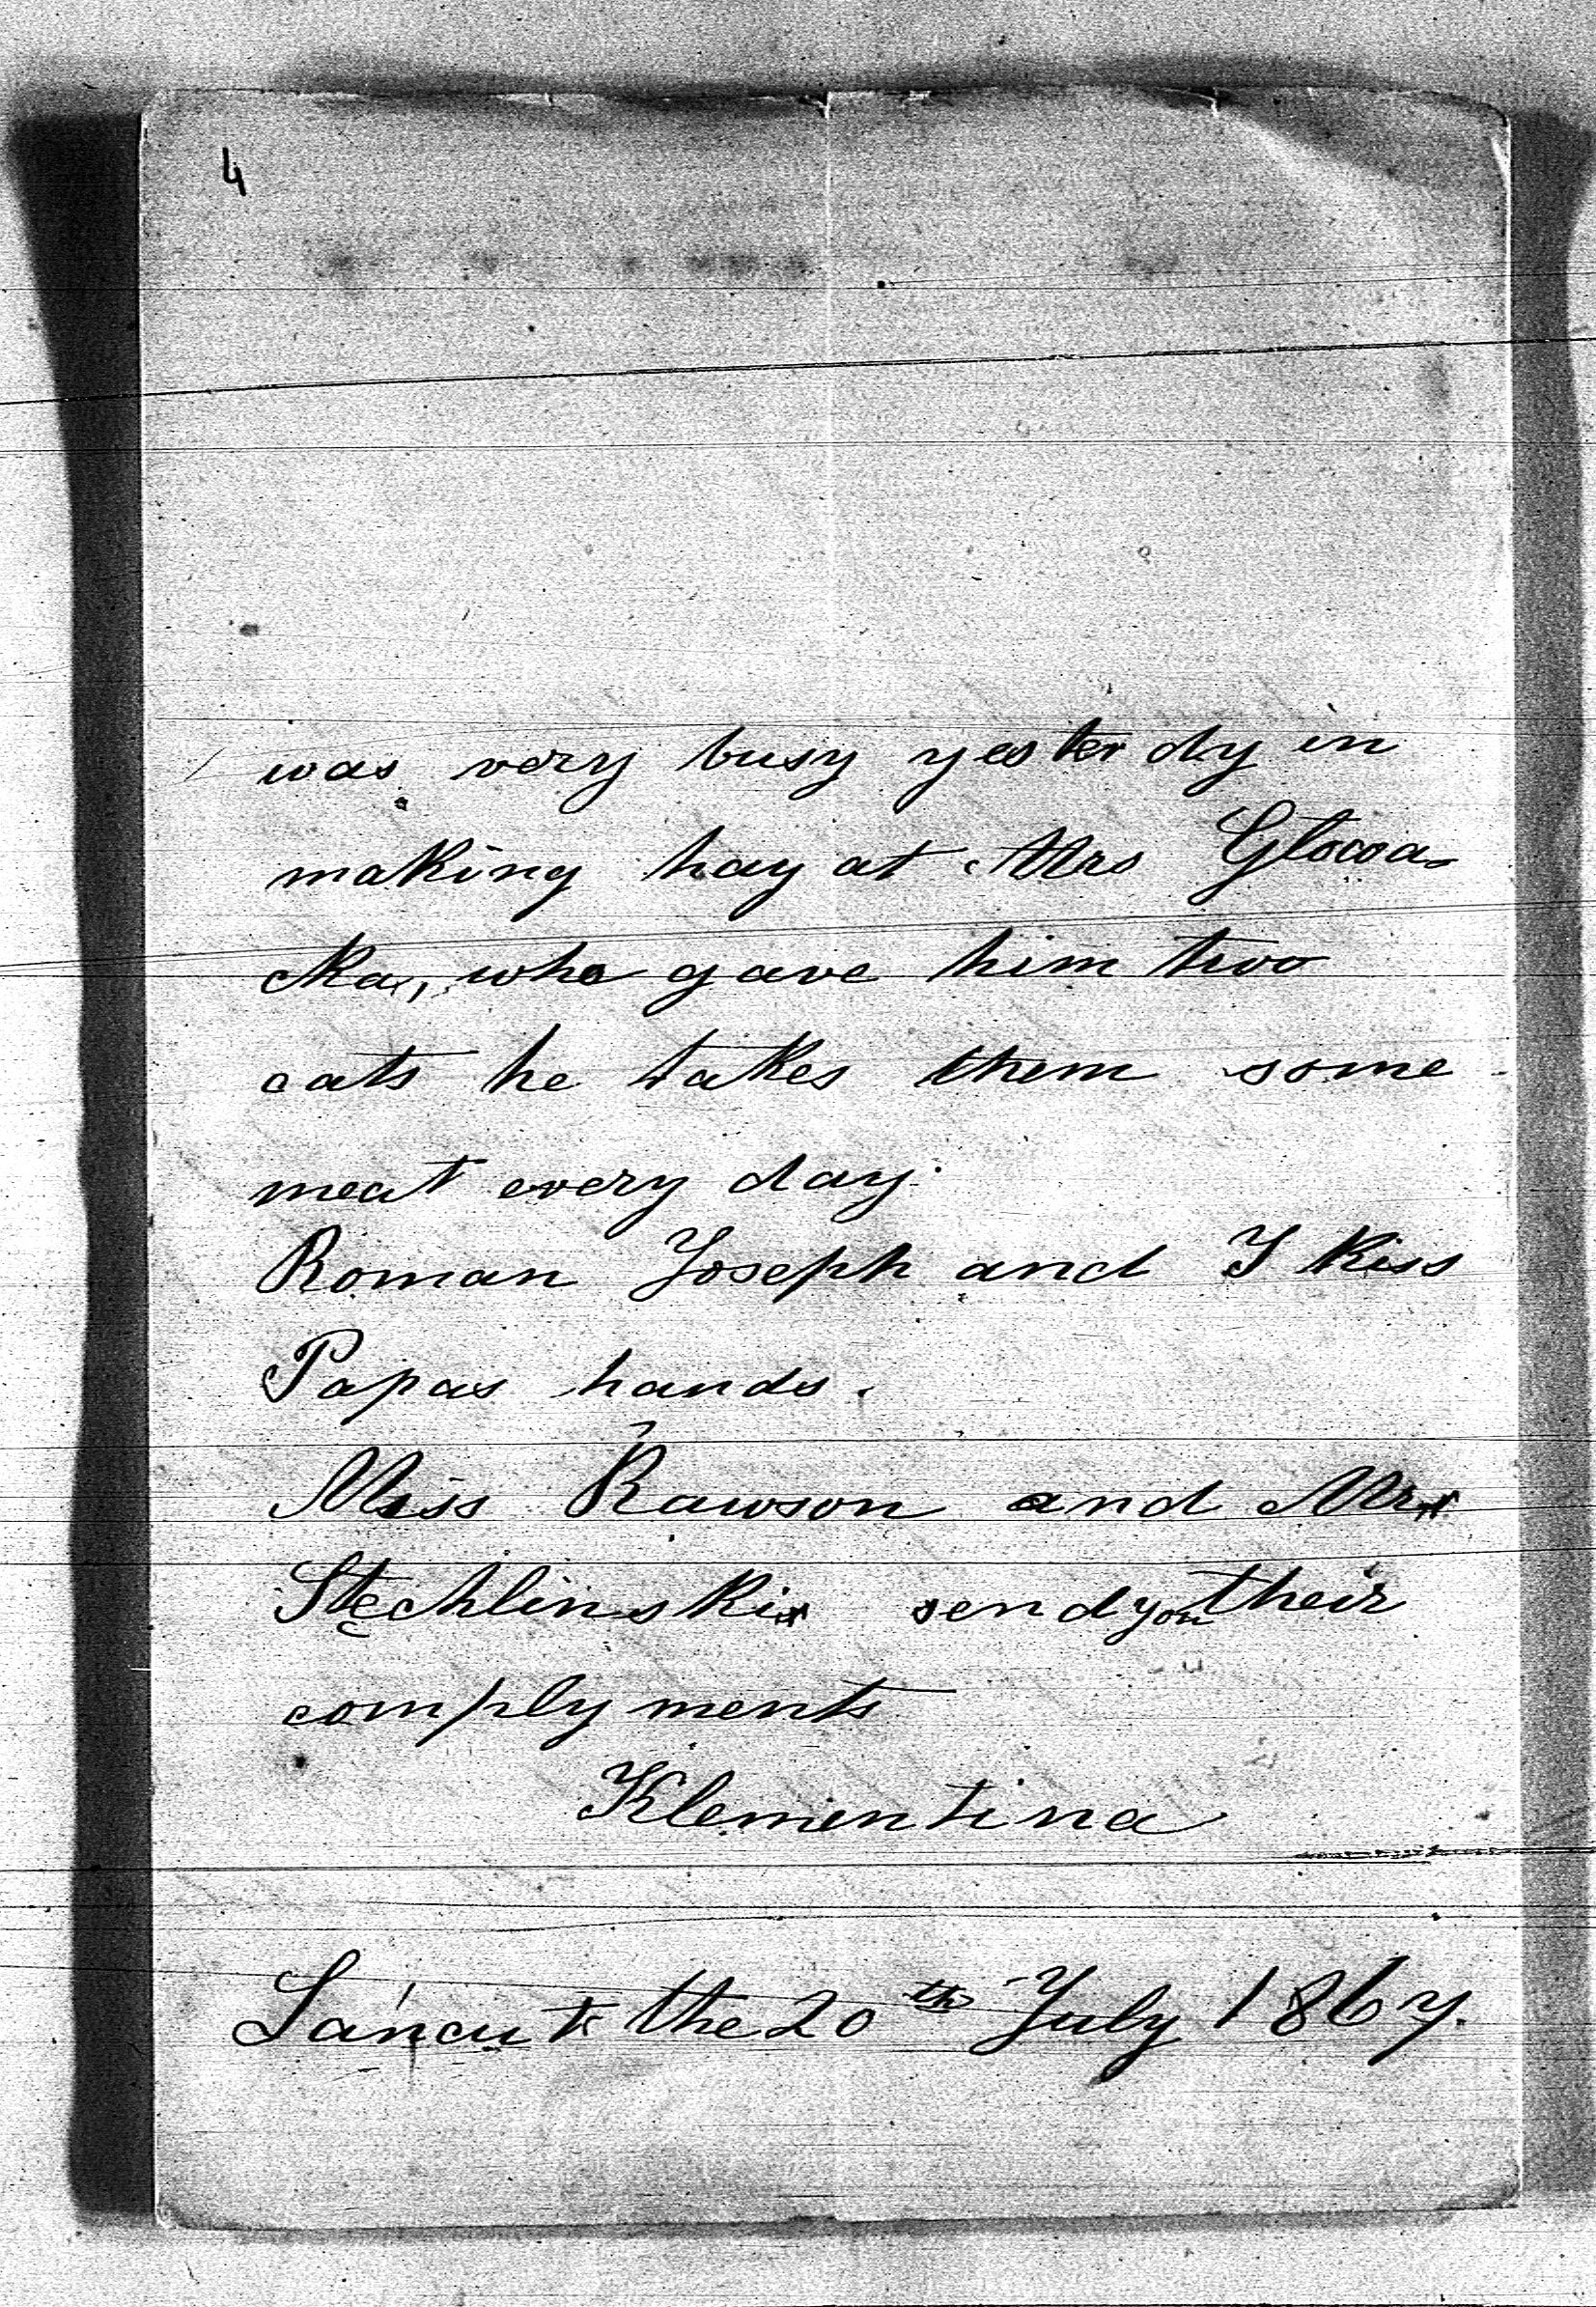 4
was very busy yesterdy in
making hay at Mrs Glowa-
cka, who gave him two
cats he takes them some
meat every day.
Roman Joseph and I kiss
Papas hands.
Miss Rawson and Mr
Stęchlinski send you their
complyments
Klementina
Łańcut the 20th July 1867.